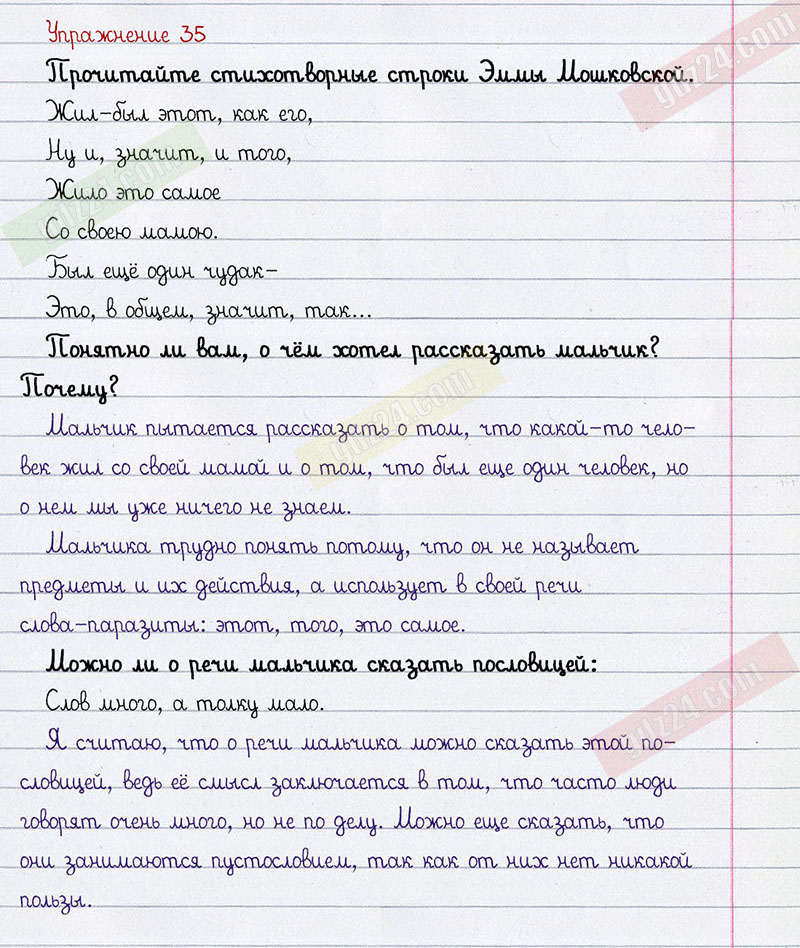 Упражнение 35
Прочитайте стихотворные строки Эммы Мошковской.
Жил-был этот, как его,
Ну и, значит, и того,
Жило это самое
Со своею мамою.
Был ещё один чудак-
Это, в общем, значит, так...
Понятно ли вам, о чём хотел рассказать мальчик?
Почему?
Мальчик пытается рассказать о том, что какой-то чело-
век жил со своей мамой и о том, что был еще один человек, но
о нем мы уже ничего не знаем.
Мальчика трудно понять потому, что он не называет
предметы и их действия, а использует в своей речи
слова-паразиты: этот, того, это самое.
Можно ли о речи мальчика сказать пословицей:
Слов много, а толку мало.
Я считаю, что о речи мальчика можно сказать этой по-
словицей, ведь её смысл заключается в том, что часто люди
говорят очень много, но не по делу. Можно еще сказать, что
они занимаются пустословием, так как от них нет никакой
пользы.
gdz24.com
gdz24.com
gdz24.com
gdz24.com